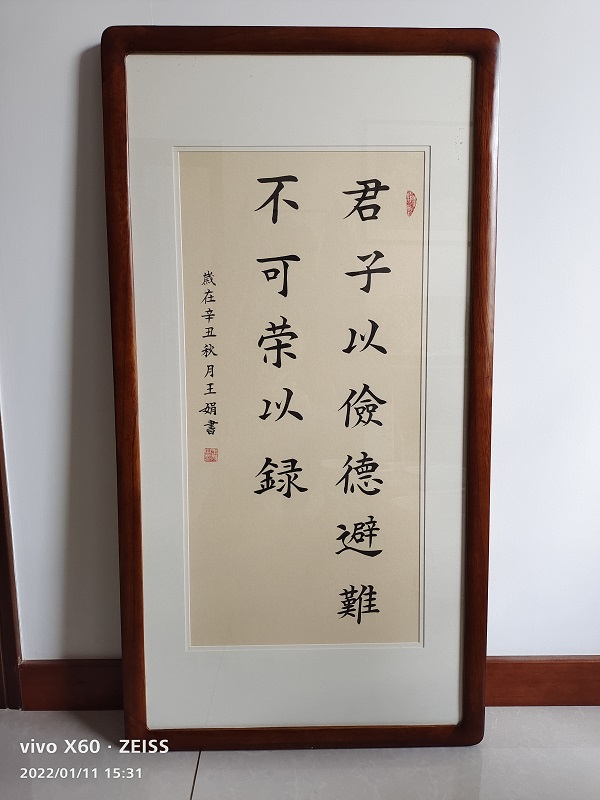 君子以儉德避難
不可荣以録
歲在辛丑秋月王娟書
vivo X60 · ZEISS
2022/01/11 15:31